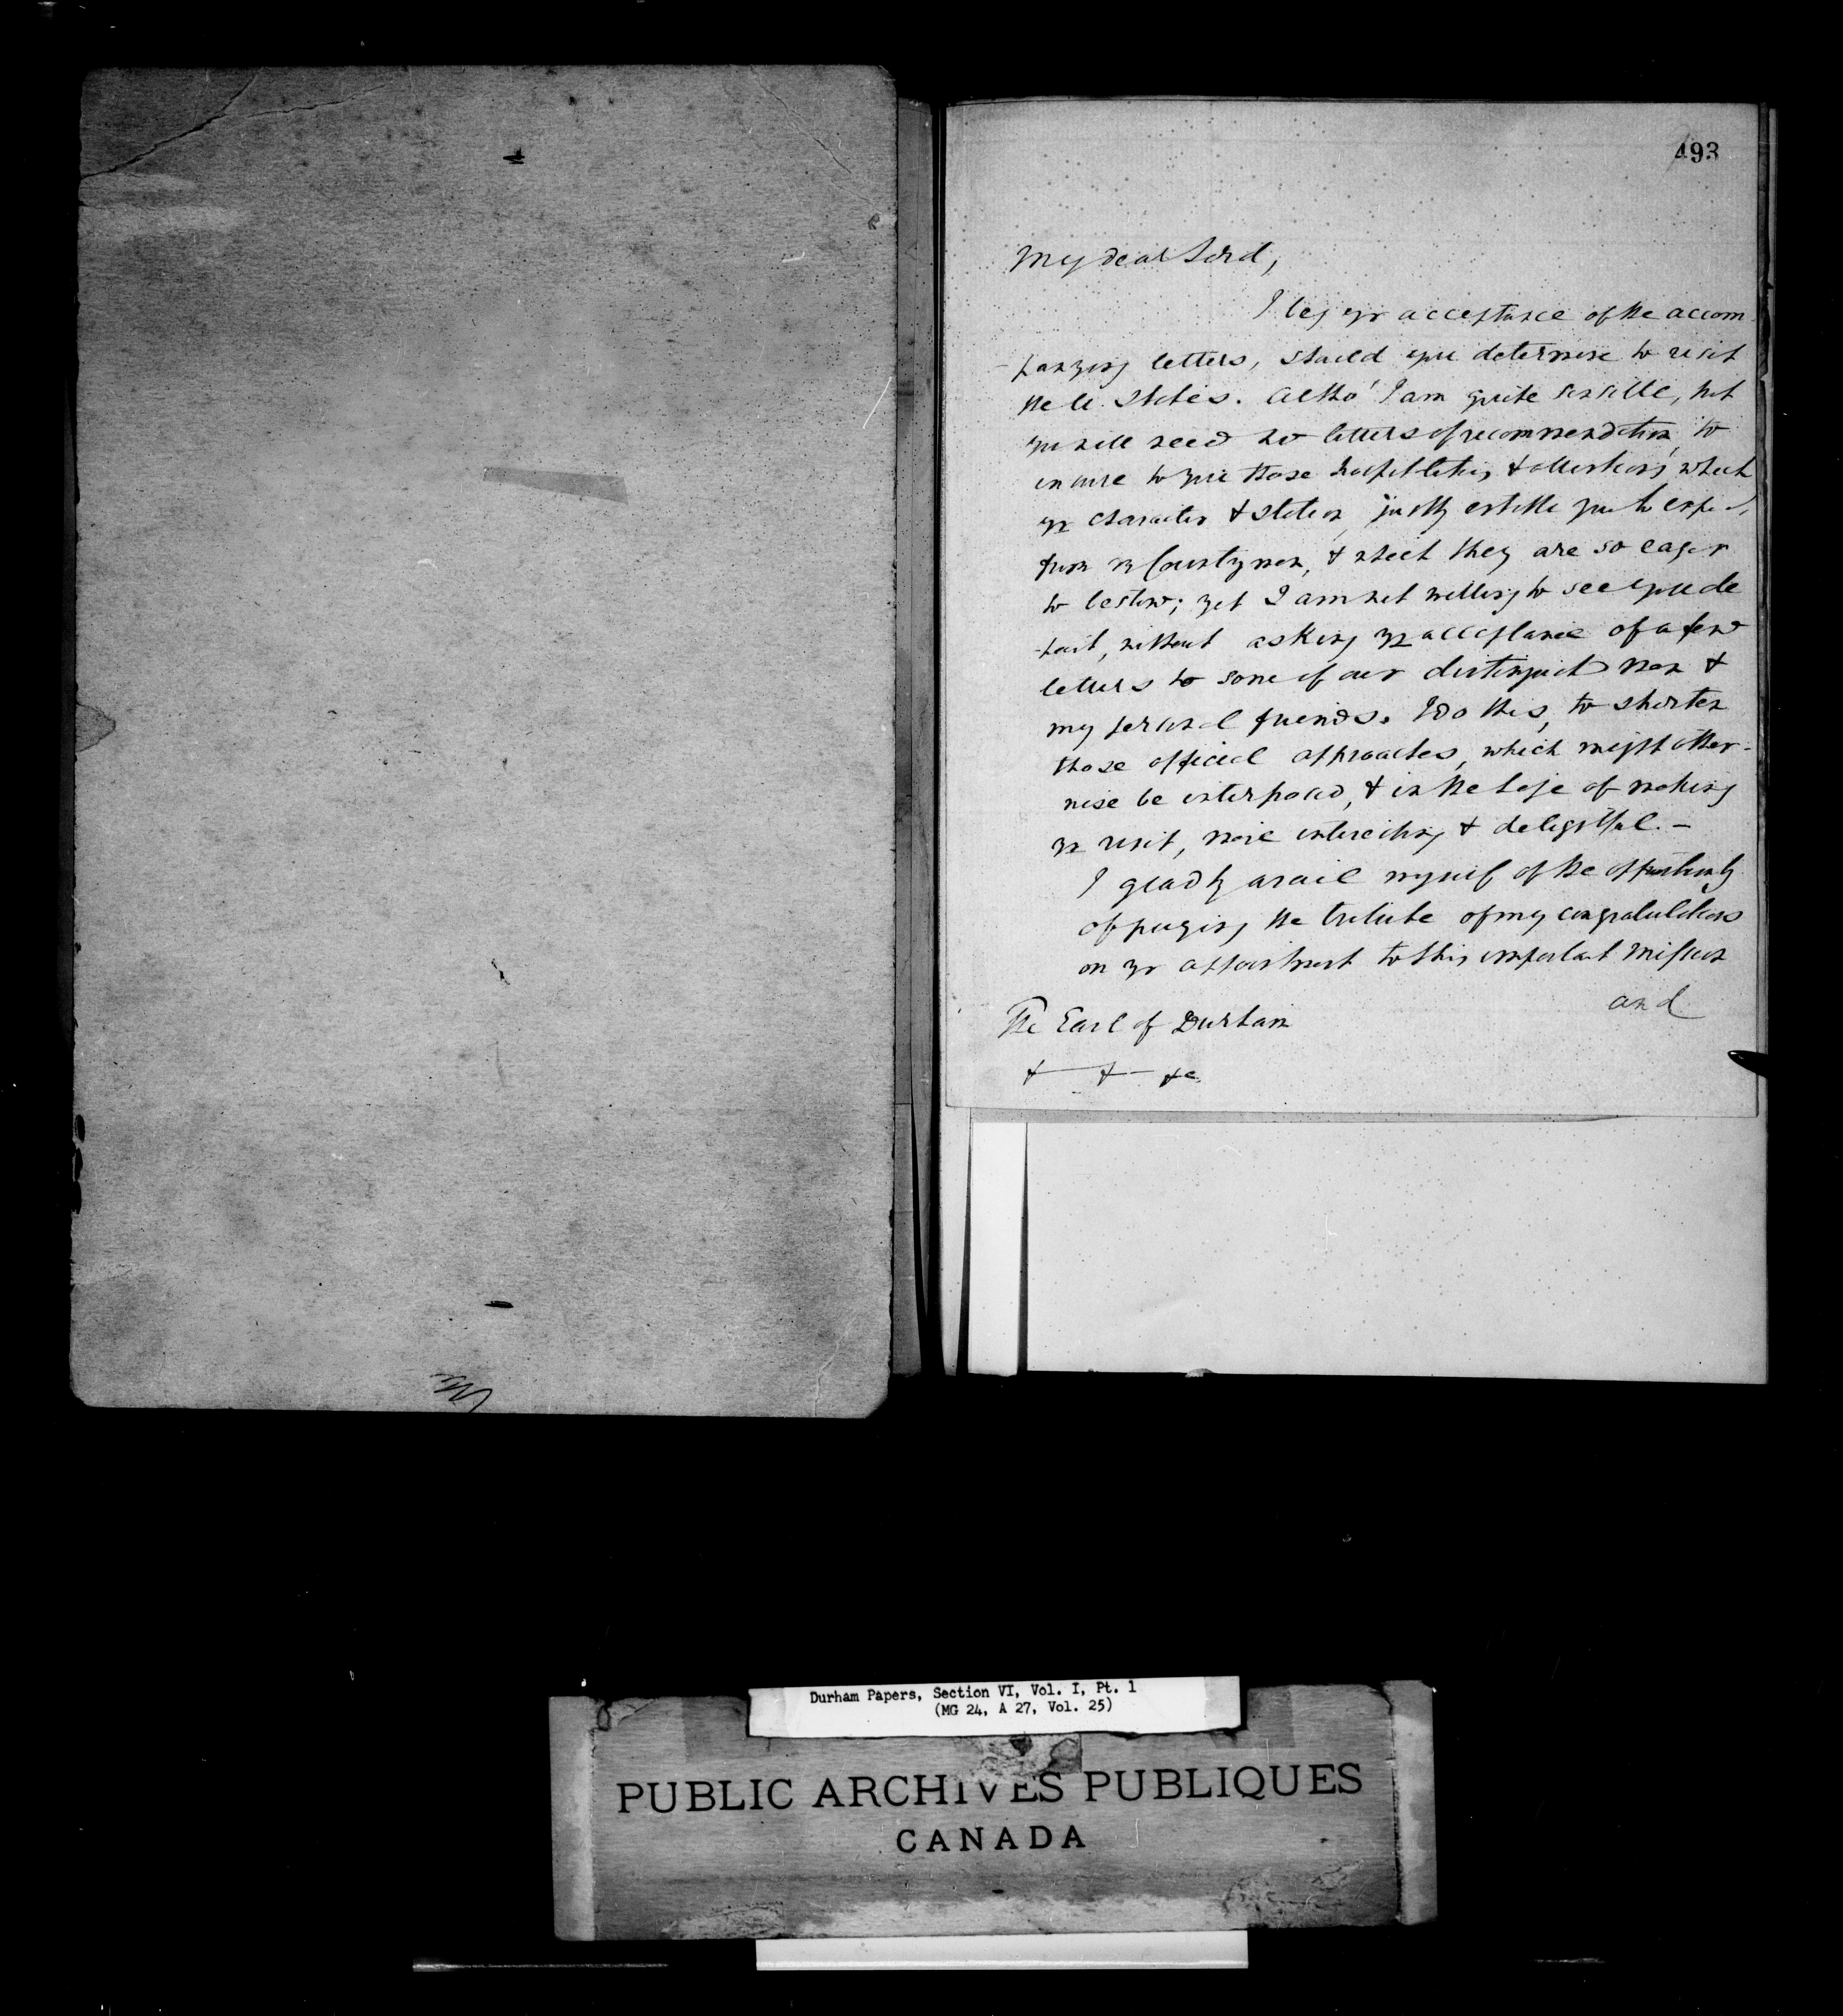 493
My dear Lord,
I beg yr acceptance of the accom
-panying letters, should you determine to visit
the U. States. Altho' I am quite sensible, that
you will need no letters of recommendation, to
ensure to you those hospitalities & attentions, which
yr character & station, justly entitle you to expect,
from my Countrymen, & which they are so eager
to bestow; yet I am not willing to see you de
-part, without asking yr acceptance of a few
letters to some of our distinguished men &
my personal friends. I do this, to shorten
those official approaches, which might other-
wise be interposed, & in the hope of making
yr visit, more interesting & delightful. -
I gladly avail myself of the opportunity
of paying the tribute of my congratulations
on yr appointment to this important mission
and
The Earl of Durham
& & &c.
Durham Papers, Section VI, Vol. I, Pt. 1
(MG 24, A 27, Vol. 25)
PUBLIC ARCHIVES PUBLIQUES
CANADA